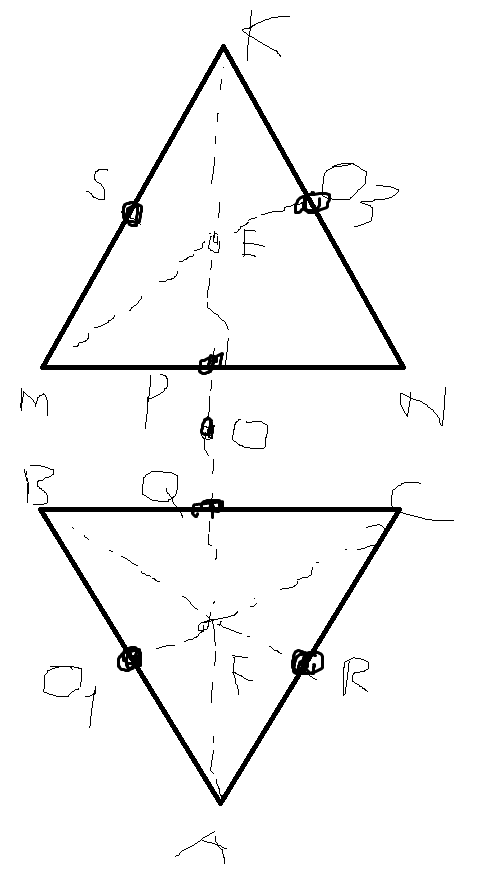 K
S
O3
E
M
P
N
O
B
Q
C
O1
F
R
A